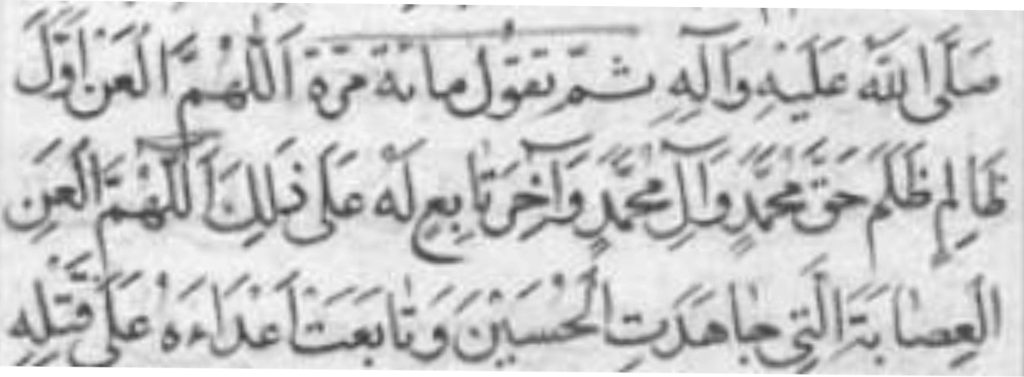 صَلَّى اللهُ عَلَيْهِ وَآلِهِ ثُمَّ تَقُولُ مِائَةَ مَرَّةٍ اَللّٰهُمَّ الْعَنْ اَوَّلَ
ظَالِمٍ ظَلَمَ حَقَّ مُحَمَّدٍ وَآلِ مُحَمَّدٍ وَآخِرَ تَابِعٍ لَهُ عَلَى ذٰلِكَ اَللّٰهُمَّ الْعَنِ
الْعِصَابَةَ الَّتِي جَاهَدَتِ الْحُسَيْنَ وَتَابَعَتْ اَعْدَاءَهُ عَلَى قَتْلِهِ